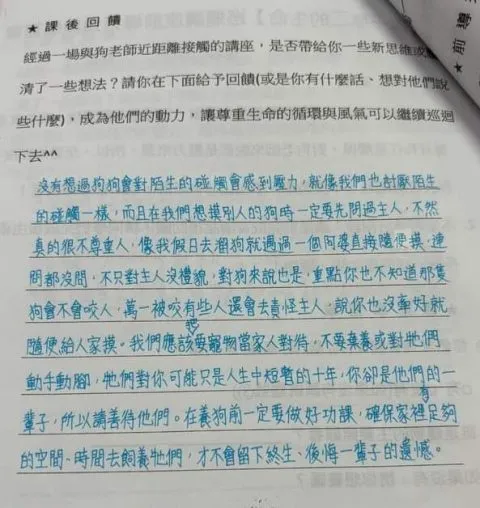 ★課後回饋
經過一場與狗老師近距離接觸的講座，是否帶給你一些新思維或
清了一些想法？請你在下面給予回饋(或是你有什麼話、想對他們說
些什麼)，成為他們的動力，讓尊重生命的循環與風氣可以繼續巡迴
下去^^
★前導
沒有想過狗狗會對陌生的碰觸會感到壓力，就像我們也討厭陌生
的碰觸一樣，而且在我們想摸別人的狗時一定要先問過主人，不然
真的很不尊重人，像我假日去遛狗就遇過一個阿罵直接隨便摸，連
問都沒問，不只對主人沒禮貌，對狗來說也是，重點你也不知道那隻
狗會不會咬人，萬一被咬有些人還會去責怪主人，說你也沒牽好就
隨便給人家摸。我們應該把寵物當家人對待，不要棄養或對牠們
動手動腳，牠們對你可能只是人生中短暫的十年，你卻是他們的一
輩子，所以請善待他們。在養狗前一定要做好功課，確保家裡有足夠
的空間、時間去飼養牠們，才不會留下終生、後悔一輩子的遺憾。